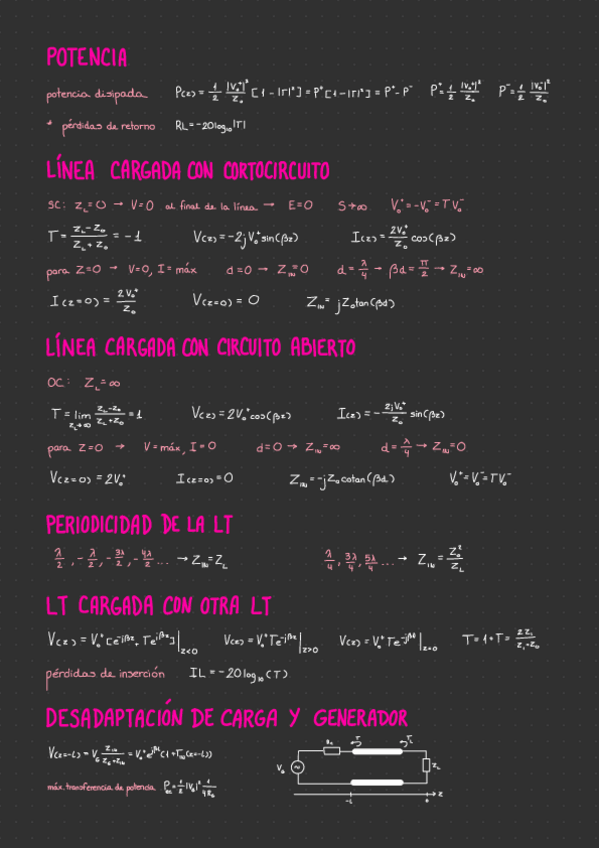 POTENCIA
potencia disipada P(z) = 1/2 |V₀⁺|²/Z₀ [1-|Γ|²] = P⁺[1-|Γ|²] = P⁺-P⁻ P⁺ = 1/2 |V₀⁺|²/Z₀ P⁻ = 1/2 |V₀⁻|²/Z₀
* pérdidas de retorno RL = -20log₁₀|Γ|
LÍNEA CARGADA CON CORTOCIRCUITO
SC: Z_L = 0 → V=0 al final de la línea → E=0 S→∞ V₀⁺ = -V₀⁻ = Γ V₀⁻
Γ = (Z_L-Z₀)/(Z_L+Z₀) = -1 V(z) = -2jV₀⁺sin(βz) I(z) = 2V₀⁺/Z₀ cos(βz)
para Z=0 → V=0, I=máx d=0 → Z_IN=0 d = λ/4 → βd = π/2 → Z_IN=∞
I(z=0) = 2V₀⁺/Z₀ V(z=0) = 0 Z_IN = jZ₀tan(βd)
LÍNEA CARGADA CON CIRCUITO ABIERTO
OC: Z_L = ∞
Γ = lim Z_L→∞ (Z_L-Z₀)/(Z_L+Z₀) = 1 V(z) = 2V₀⁺cos(βz) I(z) = -2jV₀⁺/Z₀ sin(βz)
para Z=0 → V=máx, I=0 d=0 → Z_IN=∞ d = λ/4 → Z_IN=0
V(z=0) = 2V₀⁺ I(z=0) = 0 Z_IN = -jZ₀cotan(βd) V₀⁺ = V₀⁻ = ΓV₀⁻
PERIODICIDAD DE LA LT
λ/2, -λ/2, -3λ/2, -4λ/2 ... → Z_IN = Z_L λ/4, 3λ/4, 5λ/4 ... → Z_IN = Z₀²/Z_L
LT CARGADA CON OTRA LT
V(z) = V₀⁺[e^-jβz + Γe^jβz]|z<0 V(z) = V₀⁺Te^-jβz|z>0 V(z) = V₀⁺Te^-jβ0|z=0 T = 1+Γ = 2Z₁/(Z₁+Z₀)
pérdidas de inserción IL = -20log₁₀(T)
DESADAPTACIÓN DE CARGA Y GENERADOR
V(z=-L) = V_G Z_IN/(Z_G+Z_IN) = V₀⁺e^jβL(1+Γ_IN(z=-L))
máx. transferencia de potencia = 1/2 |V_G|²
V_G Z_L
-L 0 z